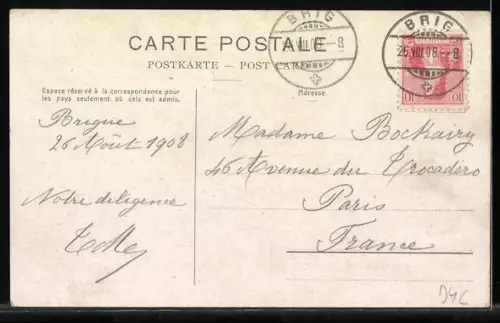 BRIG
26.VIII.08.–8
BRIG
26.VIII.08.–8
CARTE POSTALE
POSTKARTE – POST CARD
Espace réservé à la correspondance pour
les pays seulement où cela est admis.
Adresse
10 10
Brigue
26 Août 1908
Notre diligence
Madame Bockairy
46 Avenue du Trocadéro
Paris
France
D4C